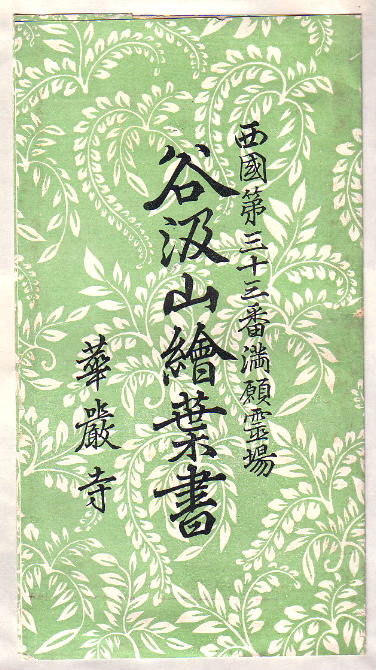 西國第三十三番満願霊場
谷汲山繪葉書
華嚴寺